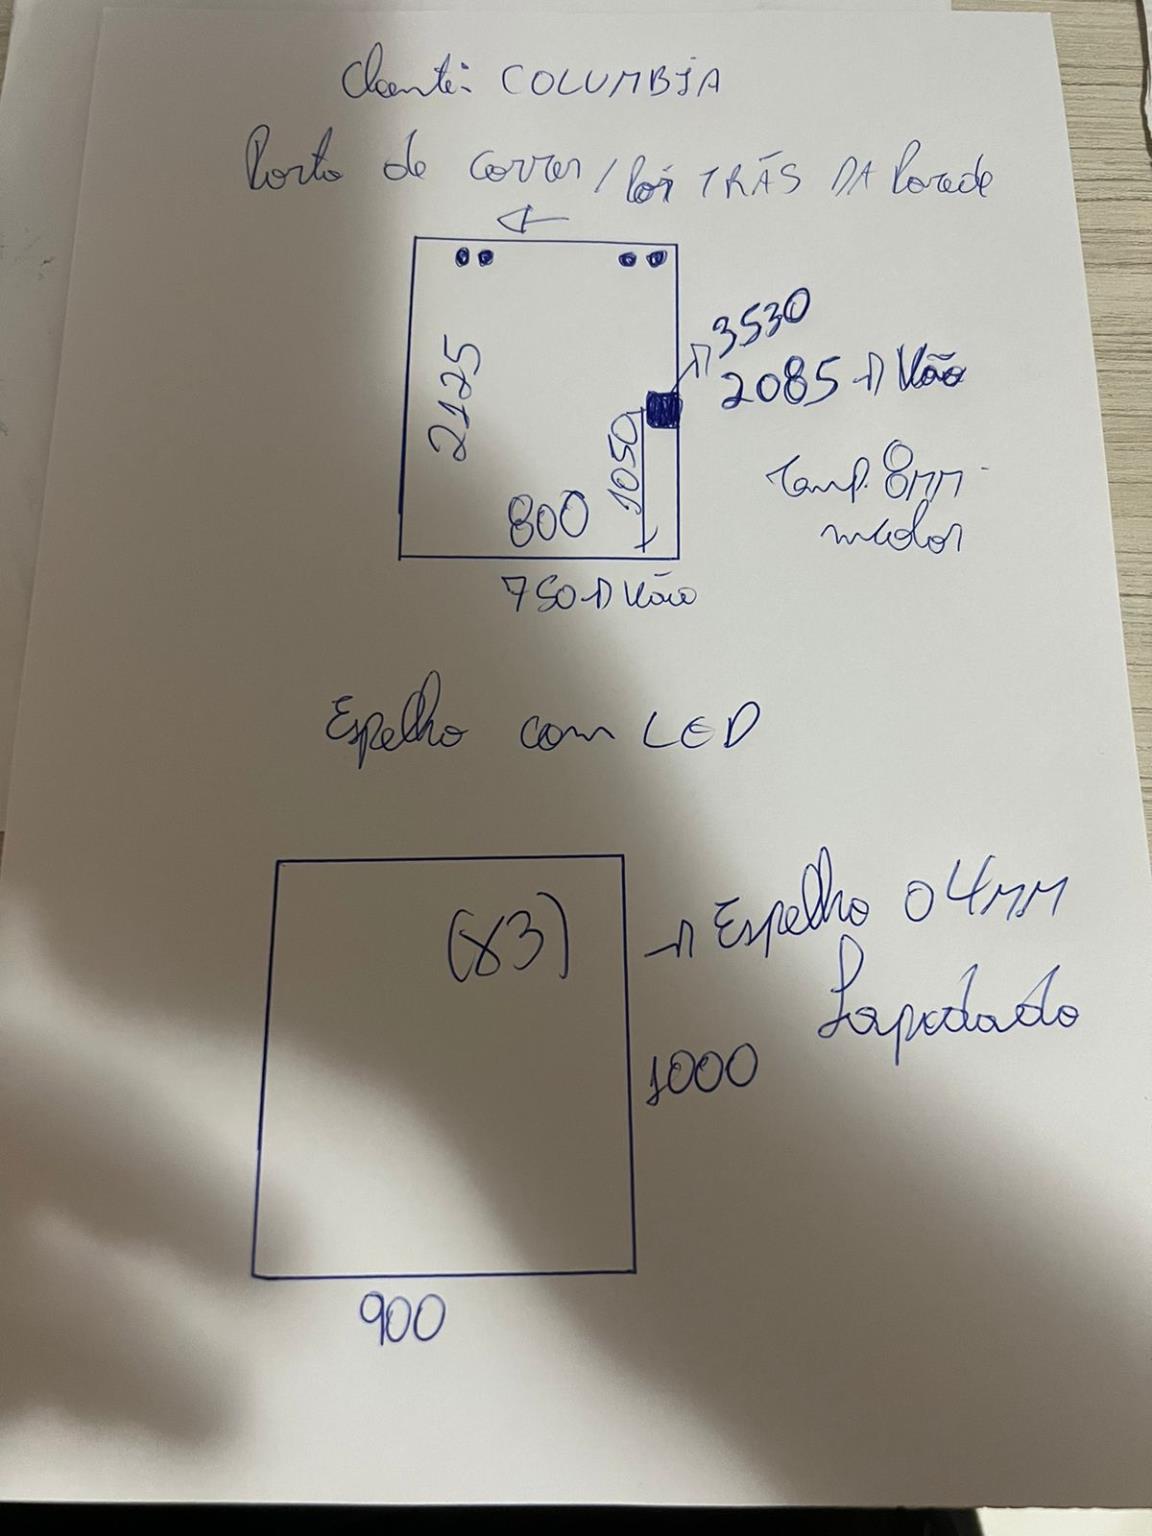 Cliente: COLUMBIA
Porta de correr / Por TRÁS DA Parede
3530
2085 → Vão
2125
1050
Temp. 8mm
incolor
800
750 → Vão
Espelho com LED
(x3)
→ Espelho 04mm
Lapidado
1000
900